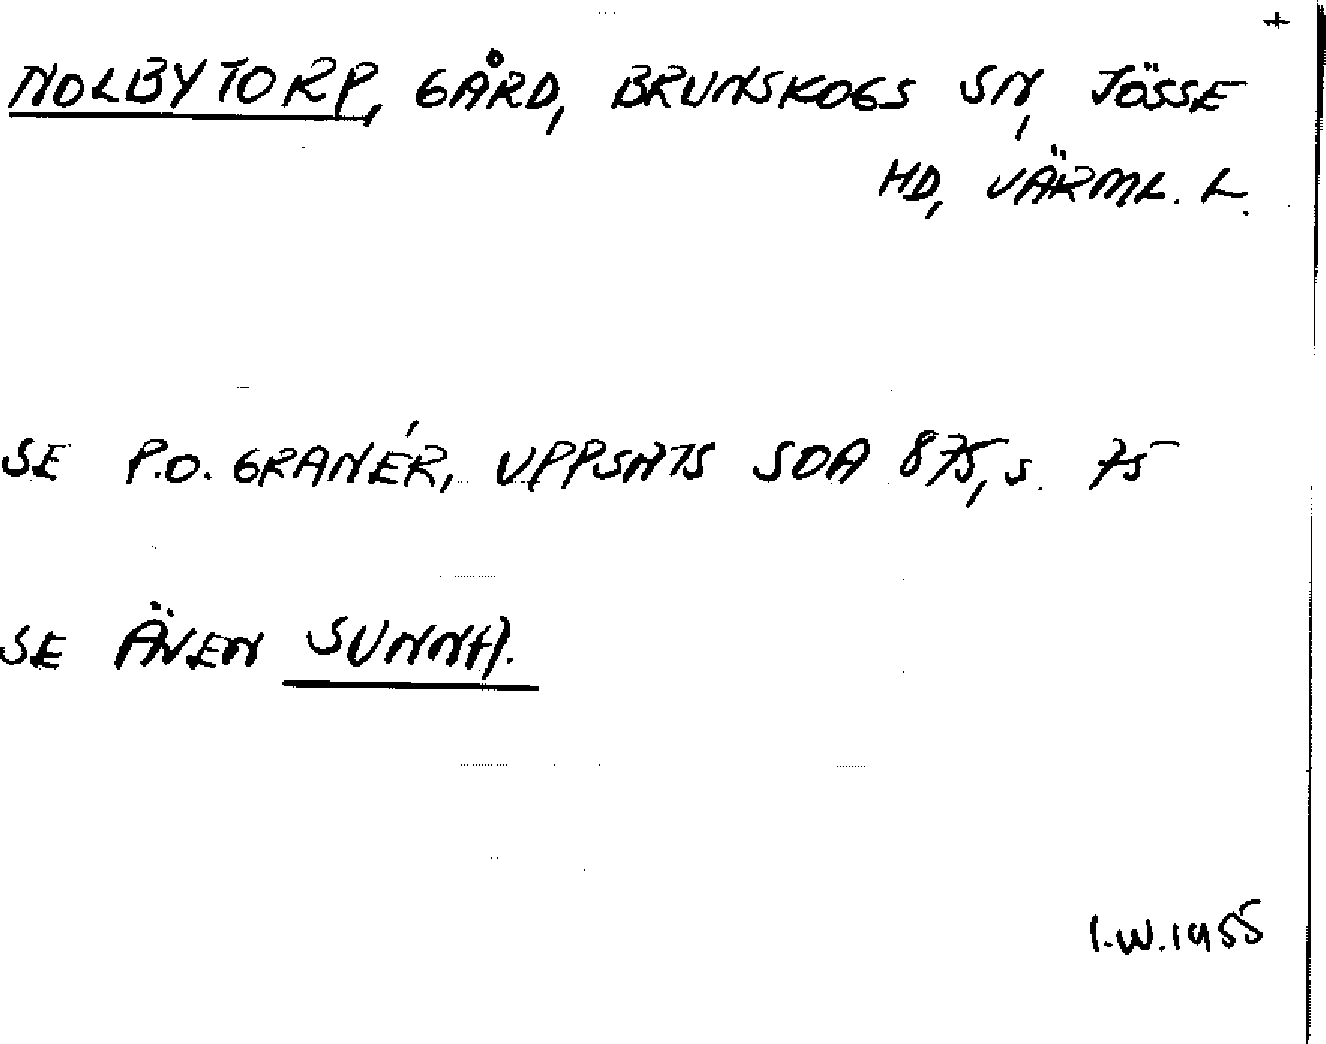 +
NOLBYTORP, GÅRD, BRUNSKOGS SN, JÖSSE
HD, VÄRML. L.
SE P.O. GRANÉR, UPPSATS SOA 875, S. 75
SE ÄVEN SUNNA.
I.W. 1955